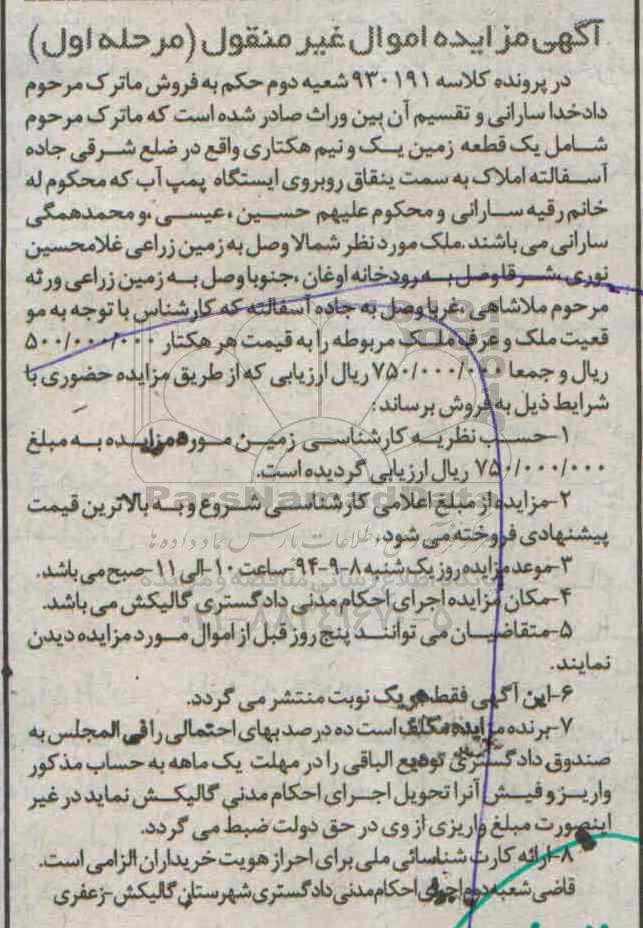 آگهی مزایده اموال غیر منقول (مرحله اول)
در پرونده کلاسه ۹۳۰۱۹۱ شعبه دوم حکم به فروش ماترک مرحوم
دادخدا سارانی و تقسیم آن بین وراث صادر شده است که ماترک مرحوم
شامل یک قطعه زمین یک و نیم هکتاری واقع در ضلع شرقی جاده
آسفالته املاک به سمت ینقاق روبروی ایستگاه پمپ آب که محکوم له
خانم رقیه سارانی و محکوم علیهم حسین ،عیسی ،و محمدهمگی
سارانی می باشند.ملک مورد نظر شمالا وصل به زمین زراعی غلامحسین
نوری ،شرقا وصل به رودخانه اوغان ،جنوبا وصل به زمین زراعی ورثه
مرحوم ملاشاهی ،غربا وصل به جاده آسفالته که کارشناس با توجه به مو
قعیت ملک و عرف ملک مربوطه را به قیمت هر هکتار ۵۰۰/۰۰۰/۰۰۰
ریال و جمعا ۷۵۰/۰۰۰/۰۰۰ ریال ارزیابی که از طریق مزایده حضوری با
شرایط ذیل به فروش برساند:
۱-حسب نظریه کارشناسی زمین مورد مزایده به مبلغ
۷۵۰/۰۰۰/۰۰۰ ریال ارزیابی گردیده است.
۲-مزایده از مبلغ اعلامی کارشناسی شروع و به بالاترین قیمت
پیشنهادی فروخته می شود.
۳-موعد مزایده روز یک شنبه ۸-۹-۹۴-ساعت ۱۰-الی ۱۱-صبح می باشد.
۴-مکان مزایده اجرای احکام مدنی دادگستری گالیکش می باشد.
۵-متقاضیان می توانند پنج روز قبل از اموال مورد مزایده دیدن
نمایند.
۶-این آگهی فقط در یک نوبت منتشر می گردد.
۷-برنده مزایده مکلف است ده درصد بهای احتمالی را فی المجلس به
صندوق دادگستری تودیع الباقی را در مهلت یک ماهه به حساب مذکور
واریز و فیش آنرا تحویل اجرای احکام مدنی گالیکش نماید در غیر
اینصورت مبلغ واریزی از وی در حق دولت ضبط می گردد.
۸-ارائه کارت شناسائی ملی برای احراز هویت خریداران الزامی است.
قاضی شعبه دوم اجرای احکام مدنی دادگستری شهرستان گالیکش -زعفری
ParsNamadData